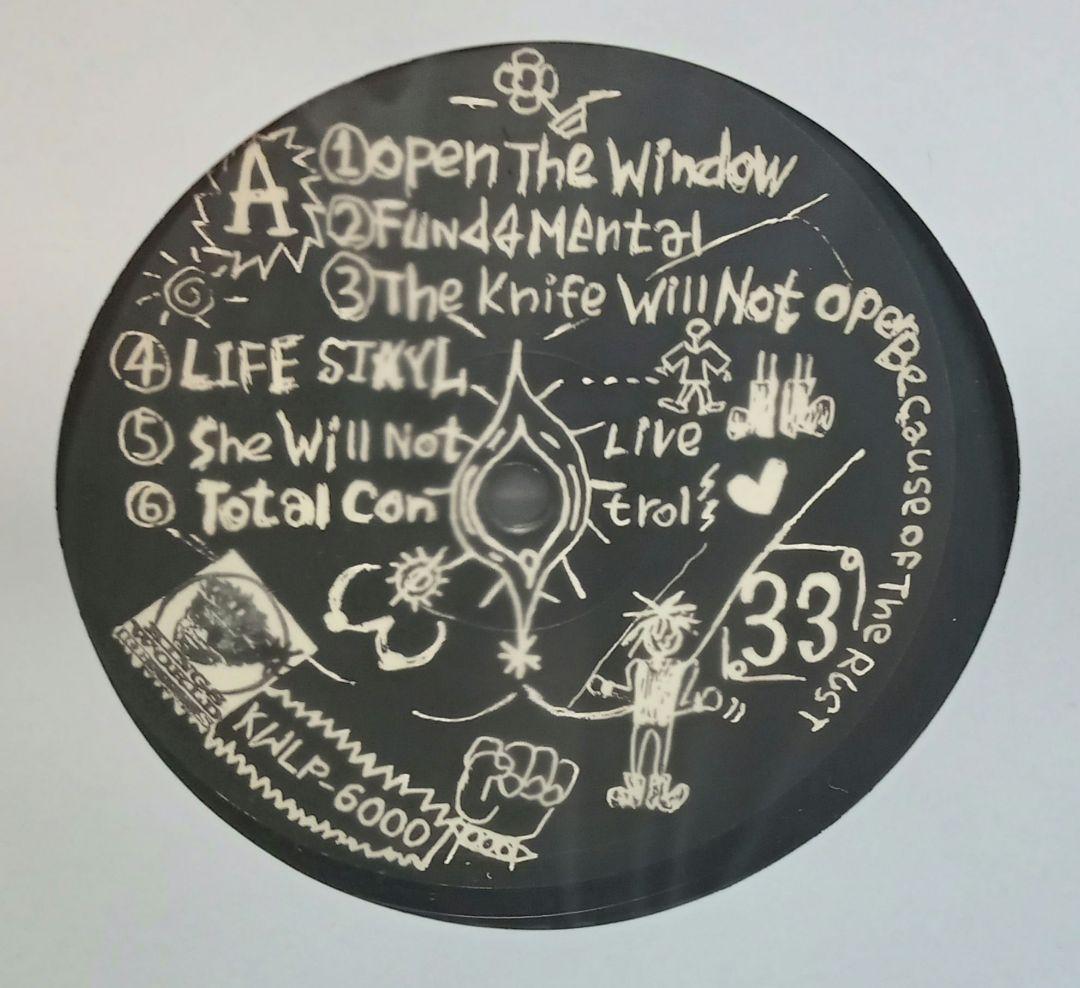 A
①Open The Window
②FUndaMental
③The Knife Will Not Open Because OF The RUST
④ LIFE STXYL
⑤ She Will Not Live
⑥ Total Control
33
KINGS
WORLD
RECORDS
KWLP-6000